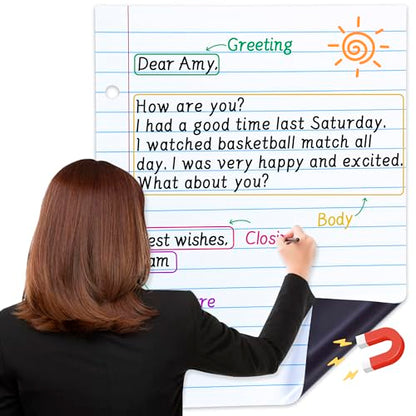 Greeting
Dear Amy,
How are you?
I had a good time last Saturday.
I watched basketball match all
day. I was very happy and excited.
What about you?
Body
est wishes, Closi
am
re